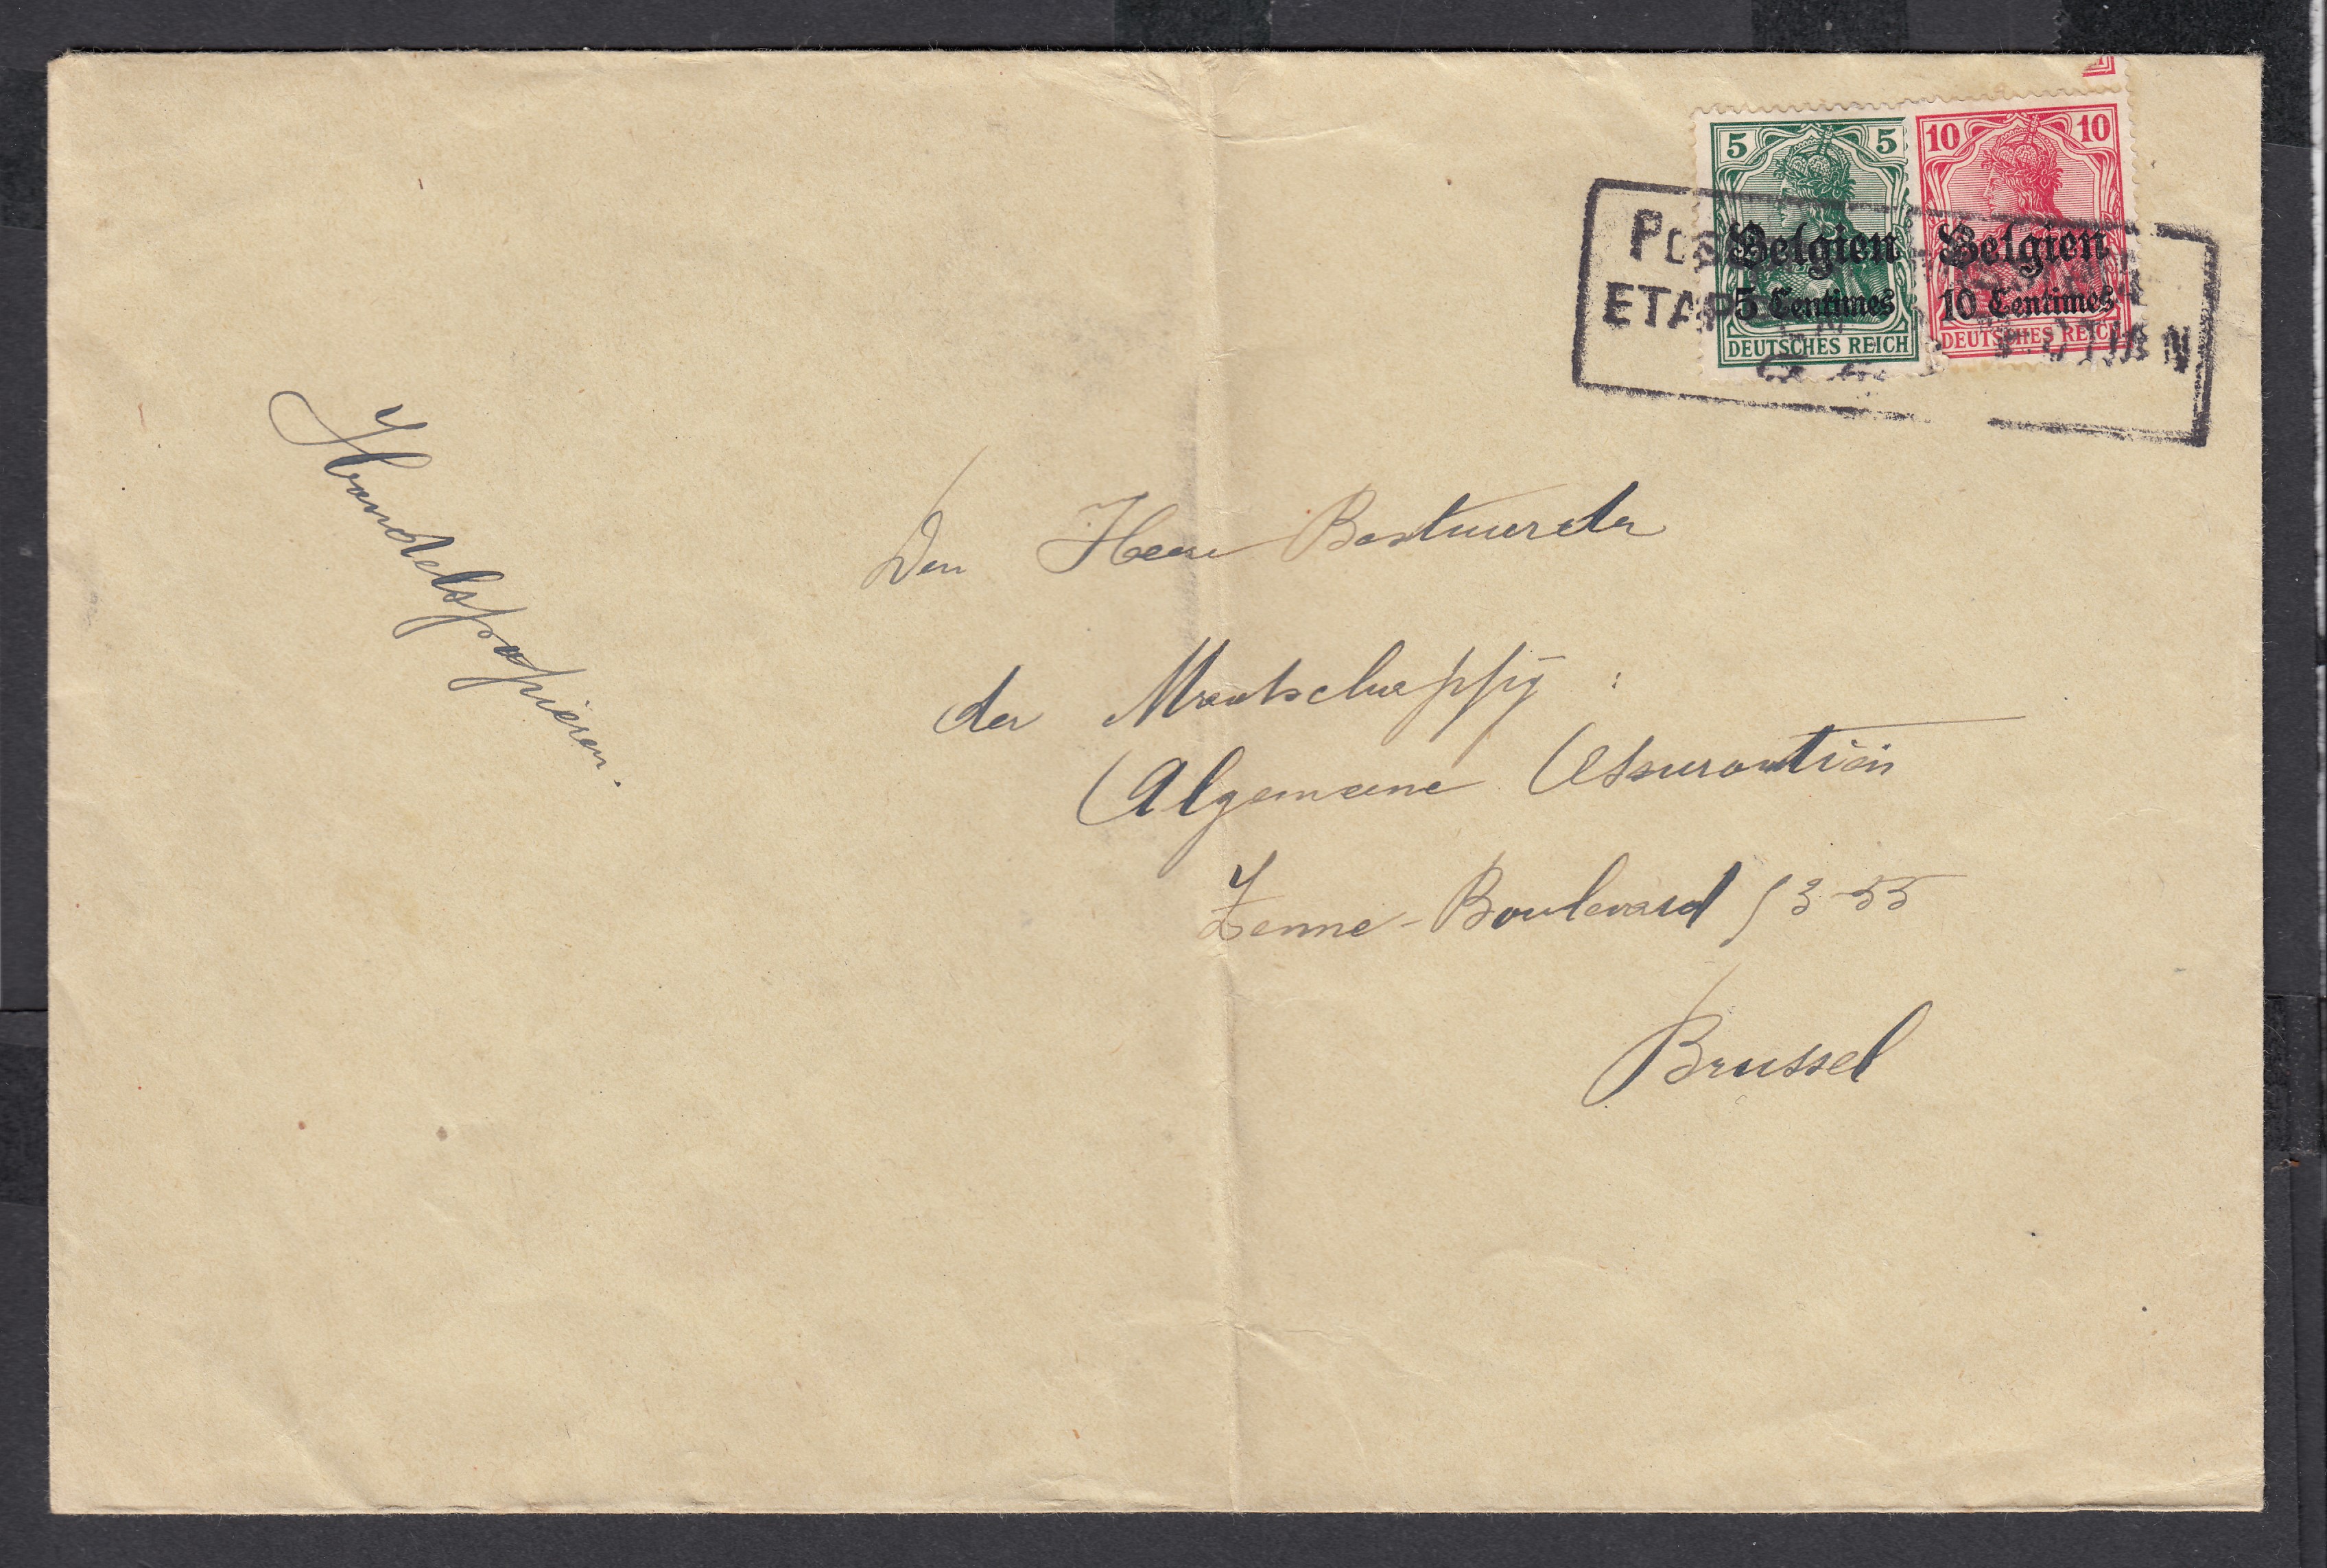 5 5
Belgien
5 Centimes
DEUTSCHES REICH
10 10
Belgien
10 Centimes
DEUTSCHES REICH
Handelspapieren.
Den Heere Bestuurder
der Maatschappij :
Algemeene Assurantiën
Zenne-Boulevard 53-55
Brussel